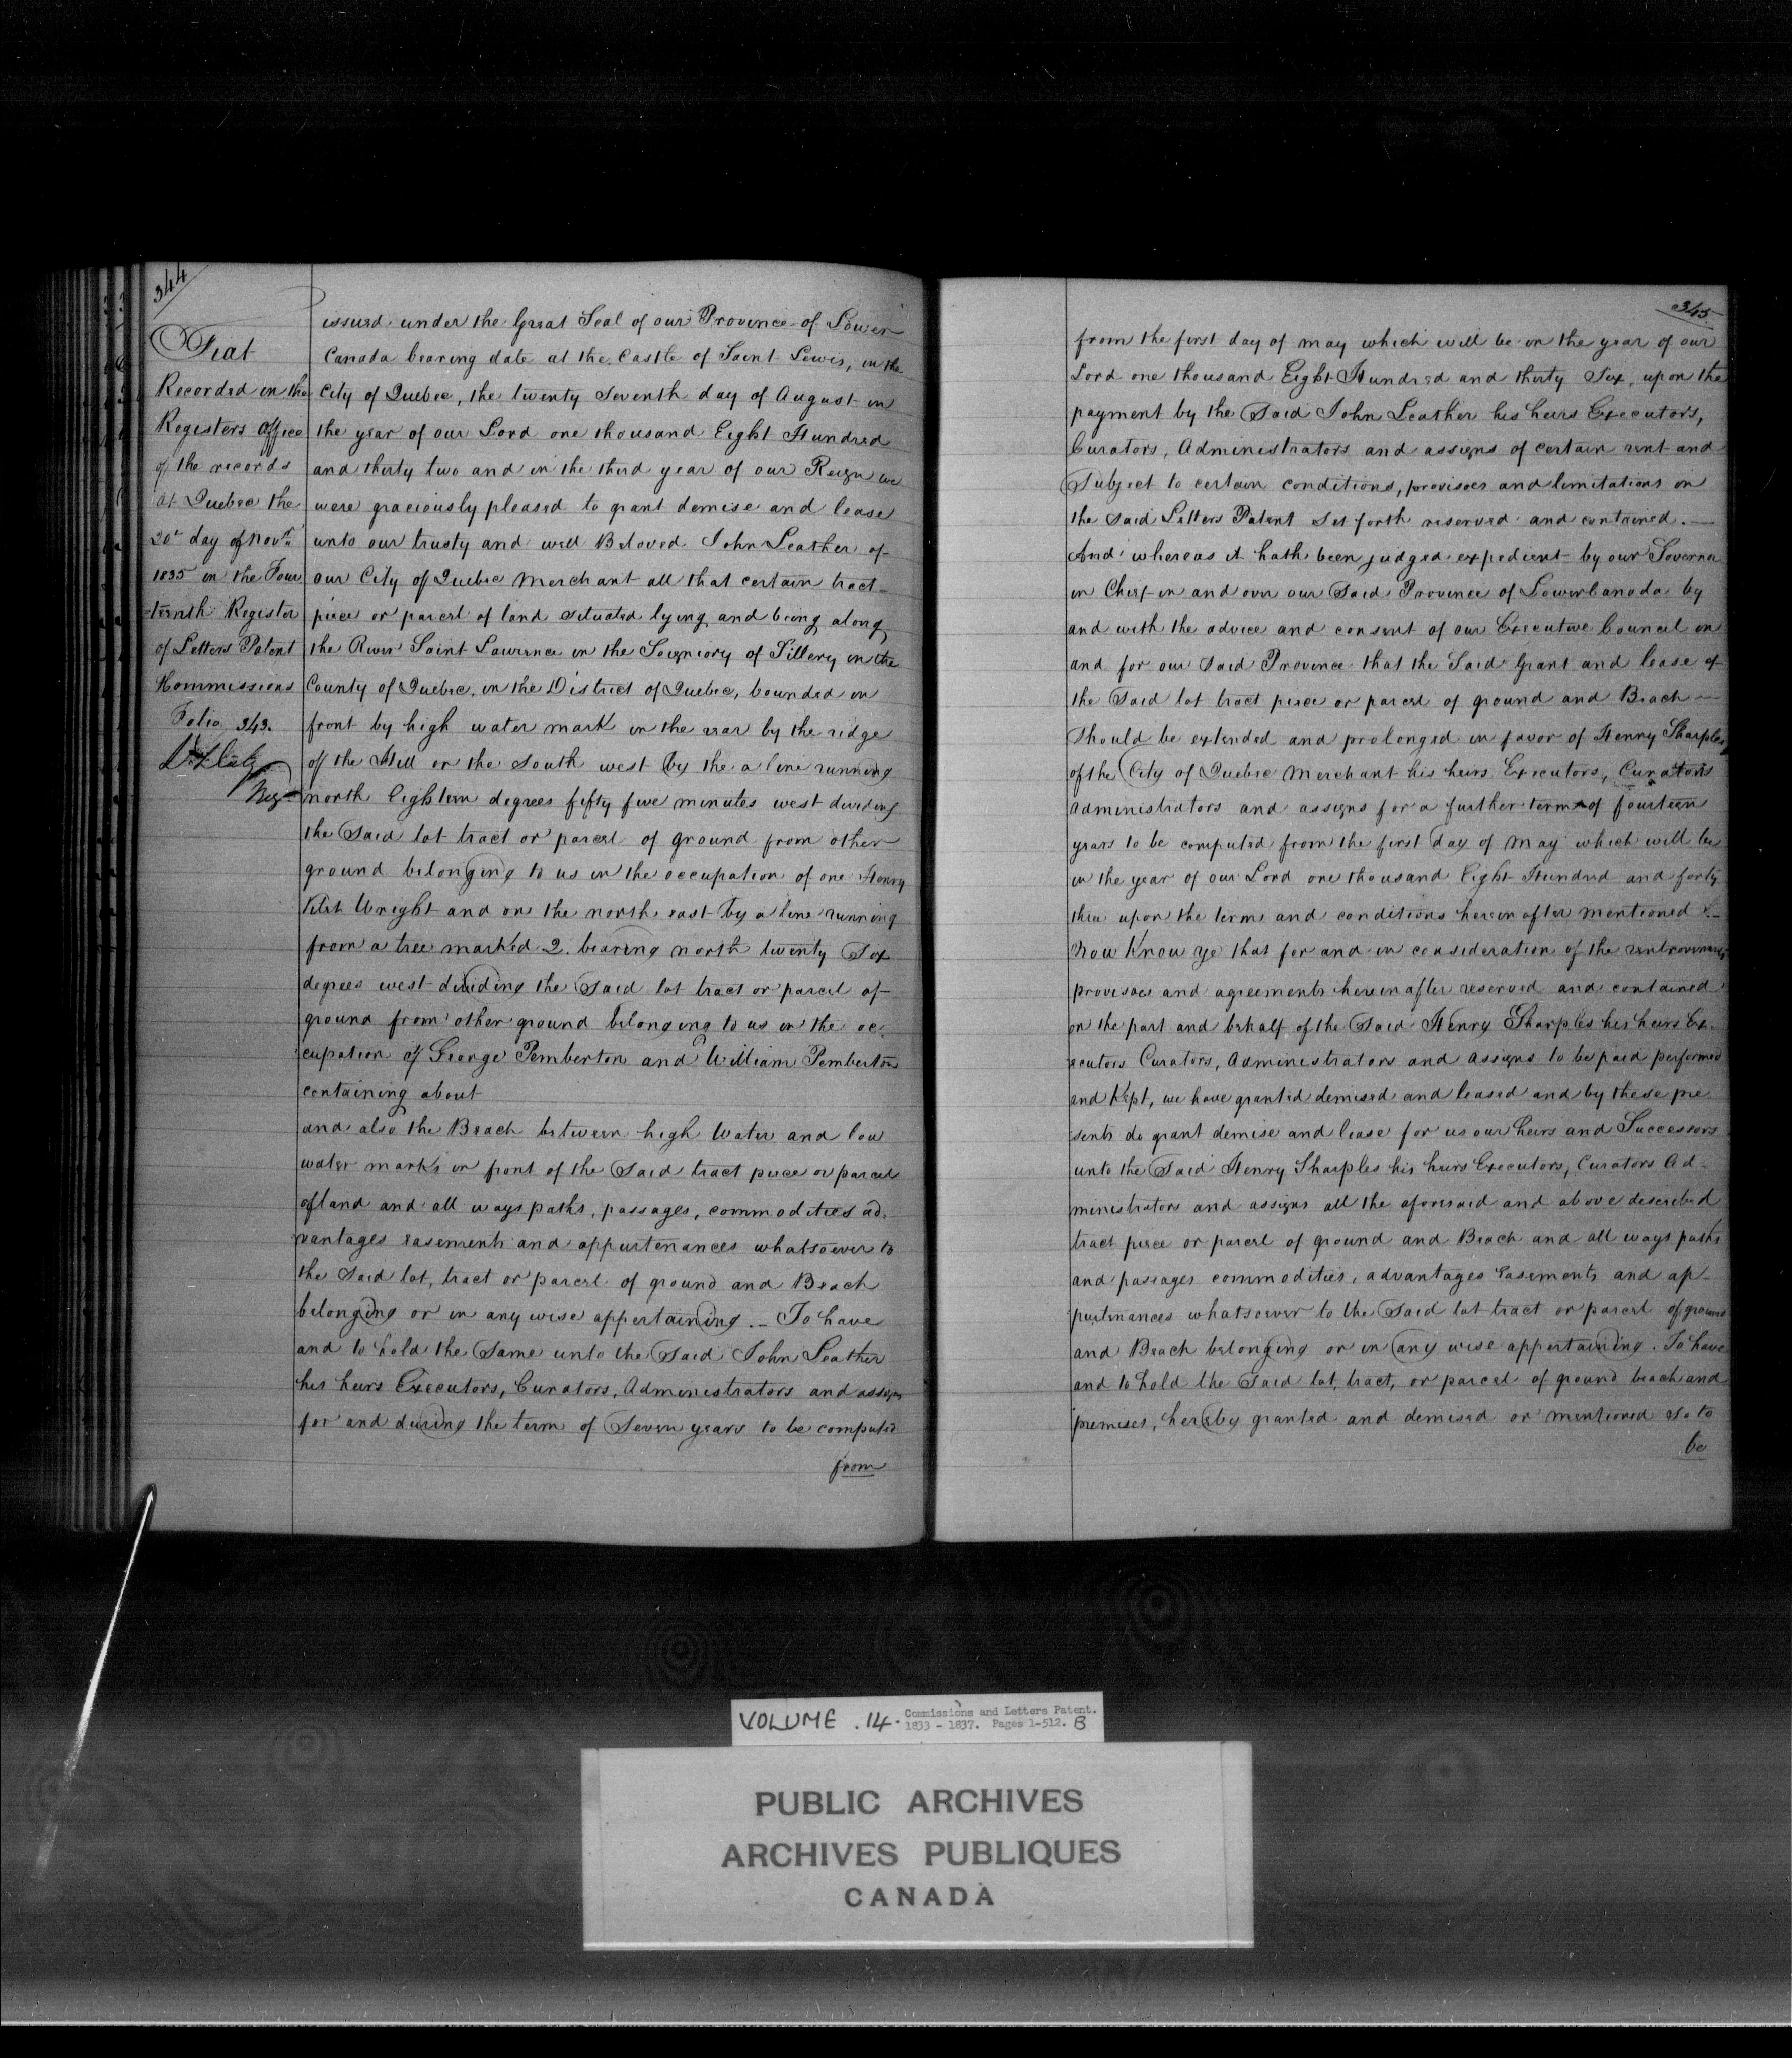 344
Fiat
Recorded in the
Registers office
of the records
at Quebec the
20th day of Novr
1835 in the Four
-teenth Register
of Letters Patent
Kommissions
Folio 343.
Reg
issued under the Great Seal of our Province of Lower
Canada bearing date at the Castle of Saint Lewis, in the
City of Quebec, the twenty Seventh day of August in
the year of our Lord one thousand Eight Hundred
and thirty two and in the third year of our Reign we
were graciously pleased to grant demise and lease
unto our trusty and well Beloved John Leather of
our City of Quebec Merchant all that certain tract
piece or parcel of land situated lying and being along
the River Saint Lawrence in the Seigniory of Sillery in the
County of Quebec, in the District of Quebec, bounded in
front by high water mark in the rear by the ridge
of the Hill on the South west by the a line running
north Eighteen degrees fifty five minutes west dividing
the Said lot tract or parcel of ground from other
ground belonging to us in the occupation of one Henry
Wright and on the north east by a line running
from a tree marked 2. bearing north twenty Six
degrees west dividing the Said lot tract or parcel of
ground from other ground belonging to us in the oc-
cupation of George Pemberton and William Pemberton
containing about
and also the Beach between high Water and low
water marks in front of the Said tract piece or parcel
of land and all ways paths, passages, commodities ad-
vantages easements and appurtenances whatsoever to
the Said lot, tract or parcel of ground and Beach
belonging or in any wise appertaining. - To have
and to hold the Same unto the Said John Leather
his heirs Executors, Curators, Administrators and assigns
for and during the term of Seven years to be computed
from
345
from the first day of may which will be in the year of our
Lord one thousand Eight Hundred and thirty Six, upon the
payment by the Said John Leather his heirs Executors,
Curators, Administrators and assigns of certain rent and
Subject to certain conditions, provisoes and limitations in
the said Letters Patent Set forth reserved and contained. —
And whereas it hath been judged expedient by our Governor
in Chief in and over our Said Province of Lower Canada by
and with the advice and consent of our Executive Council in
and for our Said Province that the Said Grant and lease of
the Said lot tract piece or parcel of ground and Beach —
Should be extended and prolonged in favor of Henry Sharples
of the City of Quebec Merchant his heirs Executors, Curators
Administrators and assigns for a further term of fourteen
years to be computed from the first day of May which will be
in the year of our Lord one thousand Eight Hundred and forty
three upon the terms and conditions herein after mentioned
Now Know Ye that for and in consideration of the rent covenants
provisoes and agreements herein after reserved and contained
on the part and behalf of the Said Henry Sharples his heirs Ex-
ecutors Curators, Administrators and Assigns to be paid performed
and Kept, we have granted demised and leased and by these pre
sents do grant demise and lease for us our heirs and Successors
unto the Said Henry Sharples his heirs Executors, Curators Ad-
ministrators and assigns all the aforesaid and above described
tract piece or parcel of ground and Beach and all ways paths
and passages commodities, advantages Easements and ap-
purtenances whatsoever to the Said lot tract or parcel of ground
and Beach belonging or in any wise appertaining. To have
and to hold the Said lot, tract, or parcel of ground beach and
premises, hereby granted and demised or mentioned so to
be
VOLUME . 14. Commissions and Letters Patent.
1833 - 1837. Pages 1-512. B
PUBLIC ARCHIVES
ARCHIVES PUBLIQUES
CANADA